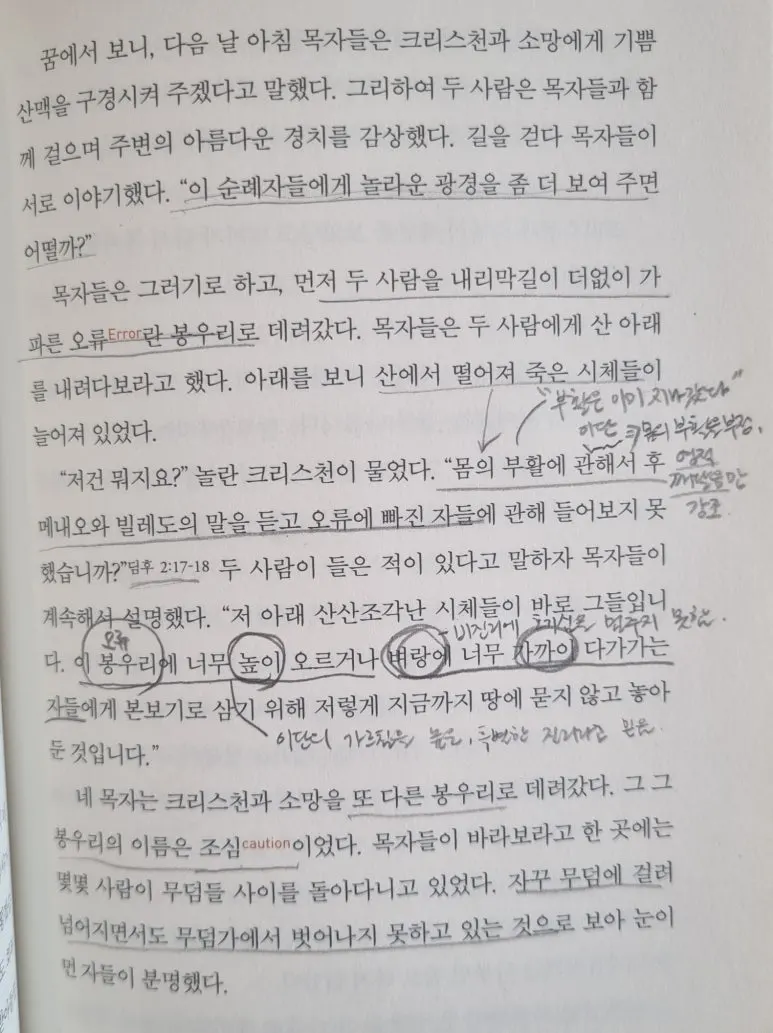 꿈에서 보니, 다음 날 아침 목자들은 크리스천과 소망에게 기쁨
산맥을 구경시켜 주겠다고 말했다. 그리하여 두 사람은 목자들과 함
께 걸으며 주변의 아름다운 경치를 감상했다. 길을 걷다 목자들이
서로 이야기했다. “이 순례자들에게 놀라운 광경을 좀 더 보여 주면
어떨까?”
목자들은 그러기로 하고, 먼저 두 사람을 내리막길이 더없이 가
파른 오류Error란 봉우리로 데려갔다. 목자들은 두 사람에게 산 아래
를 내려다보라고 했다. 아래를 보니 산에서 떨어져 죽은 시체들이
늘어져 있었다.
“부활은 이미 지나갔다”
이단, 몸의 부활을 부정,
“저건 뭐지요?” 놀란 크리스천이 물었다. “몸의 부활에 관해서 후
영적
깨달음만
강조.
메내오와 빌레도의 말을 듣고 오류에 빠진 자들에 관해 들어보지 못
했습니까?”딤후 2:17-18 두 사람이 들은 적이 있다고 말하자 목자들이
계속해서 설명했다. “저 아래 산산조각난 시체들이 바로 그들입니
오류
- 비진리에 호기심을 멈추지 못함.
다. 이 봉우리에 너무 높이 오르거나 벼랑에 너무 가까이 다가가는
자들에게 본보기로 삼기 위해 저렇게 지금까지 땅에 묻지 않고 놓아
둔 것입니다.”
이단의 가르침을 높은, 특별한 진리라고 믿음.
네 목자는 크리스천과 소망을 또 다른 봉우리로 데려갔다. 그 그
봉우리의 이름은 조심caution이었다. 목자들이 바라보라고 한 곳에는
몇몇 사람이 무덤들 사이를 돌아다니고 있었다. 자꾸 무덤에 걸려
넘어지면서도 무덤가에서 벗어나지 못하고 있는 것으로 보아 눈이
먼 자들이 분명했다.